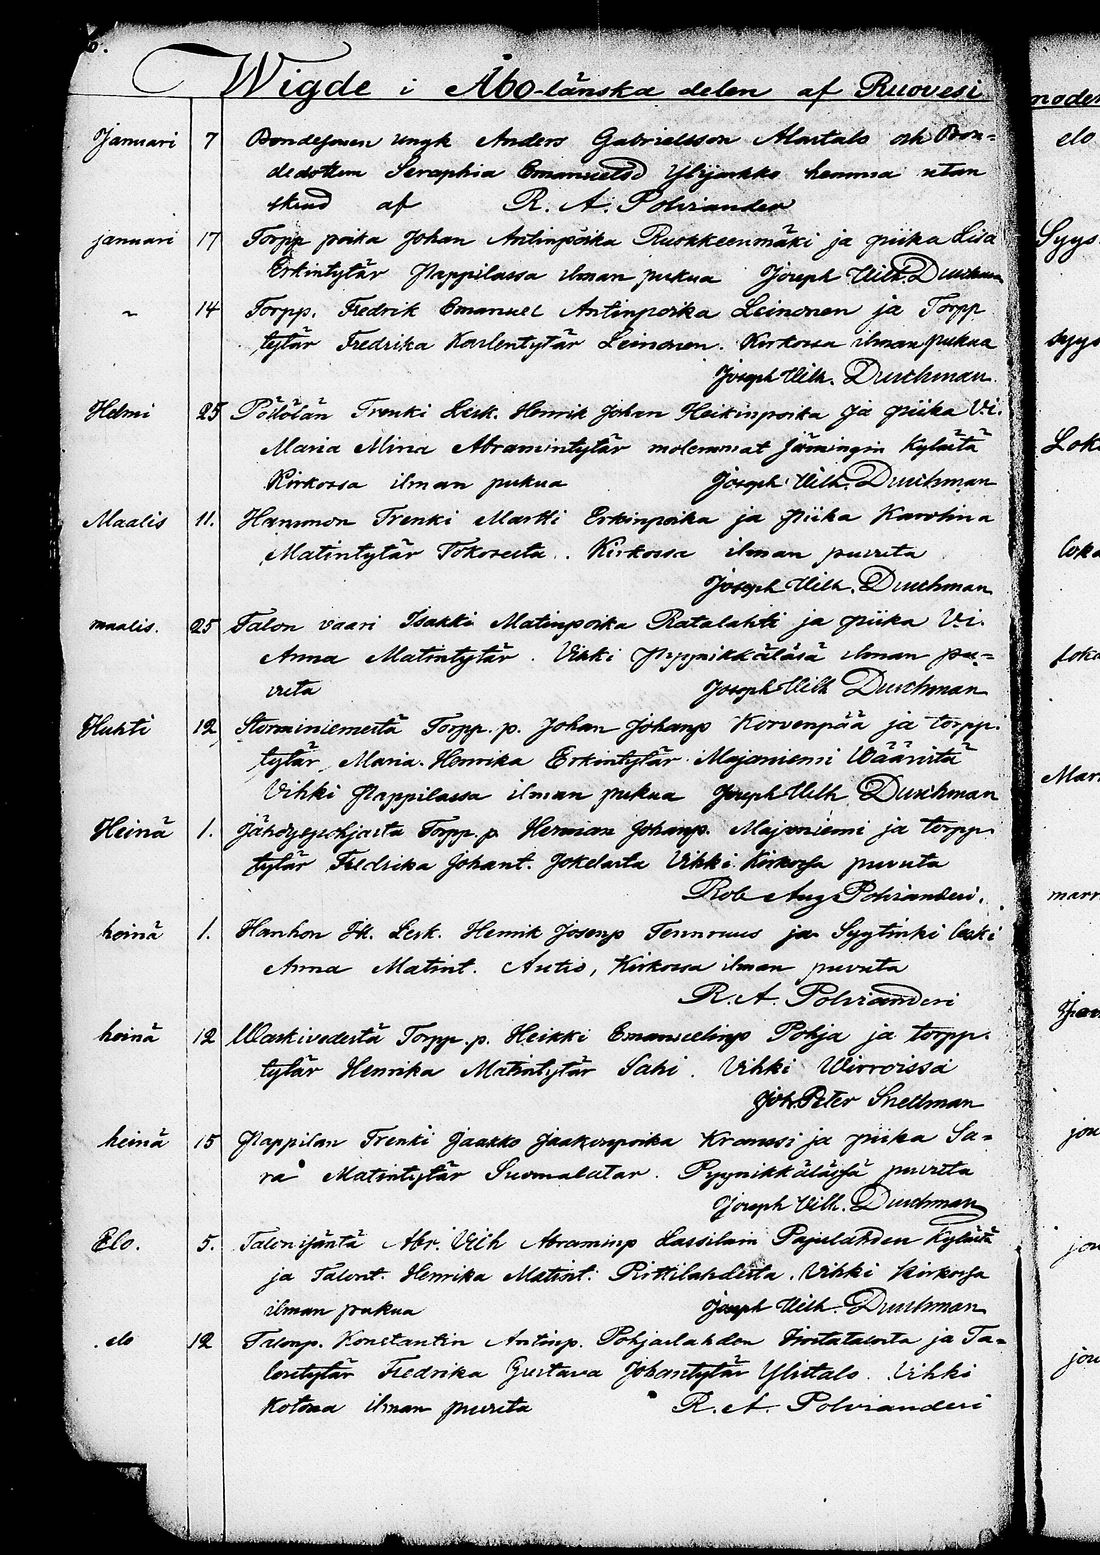 6.
Wigde i Åbo-länska delen af Ruovesi
Januari 7 Bondesonen ungk Anders Gabrielsson Alartalo och Bon=
dedottern Seraphia Emanuelsd Ylijaakko hemma utan
skrud af R. A. Polviander
januari 17 Torpp poika Johan Antinpoika Ruokkeenmäki ja piika Lisa
Erkintytär Pappilassa ilman pukua Joseph Vilh. Duschman
" 14 Torpp. Fredrik Emanuel Antinpoika Leinonen ja Torpp
tytär Fredrika Kaarlentytär Leinonen. Kirkossa ilman pukua
Joseph Vilh. Duschman.
Helmi 25 Pölölän Trenki Lesk. Henrik Johan Heikinpoika ja piika V.i.
Maria Mina Abramintytär molemmat Jämingin Kylästä
Kirkossa ilman pukua Joseph Vilh. Duschman
Maalis 11. Hannonon Trenki Martti Erkinpoika ja piika Karolina
Matintytär Tokoresta. Kirkossa ilman puvuta
Joseph Vilh. Duschman
maalis. 25 Talon vaari Isakki Matinpoika Ratalahti ja piika V.i.
Anna Matintytär. Vihki Pyynikkälässä ilman pu=
vuta Joseph Vilh Duschman
Huhti 12 Storminiemestä Torpp. p. Johan Johanp Korvenpää ja torpp.
tytär Maria Henrika Erkintytär Majaniemi Vääristä
Vihki Pappilassa ilman pukua Joseph Vilh Duschman
Heinä 1. Jähdyspohjasta Torpp. p Herman Johanp. Majaniemi ja torpp.
tytär Fredrika Johant. Jokelasta Vihki Kirkossa puvuta
Rob Aug Polvianderi.
heinä 1. Hanhon It. Lesk. Henrik Josenp Tennruus ja Syytinki leski
Anna Matint. Autio, Kirkossa ilman puvuta
R. A. Polvianderi
heinä 12 Waskivedestä Torpp. p. Heikki Emanuelinp Pohja ja torpp.
tytär Henrika Matintytär Sahi. Vihki Wirroissa
Joh. Peter Snellman
heinä 15 Pappilan Trenki Jaakko Jaakonpoika Kranssi ja piika Sa=
ra Matintytär Suomalatar. Pyynikkälässä puvuta
Joseph Vilh. Duschman
Elo. 5. Talonisäntä Abr. Vilh Abraminp Lassilain Pajulahden Kylästä
ja Talont. Henrika Matint. Riittilahdesta. Vihki Kirkossa
ilman pukua Joseph Vilh. Duschman
elo 12 Talonp. Konstantin Antinp. Pohjaslahden ja Ta=
lontytär Fredrika Gustava Johantytär Ylitalo. Vihki
Kotona ilman puvuta R. A. Polvianderi
elo
Syys
syys
Loka
loka
Marr
marr